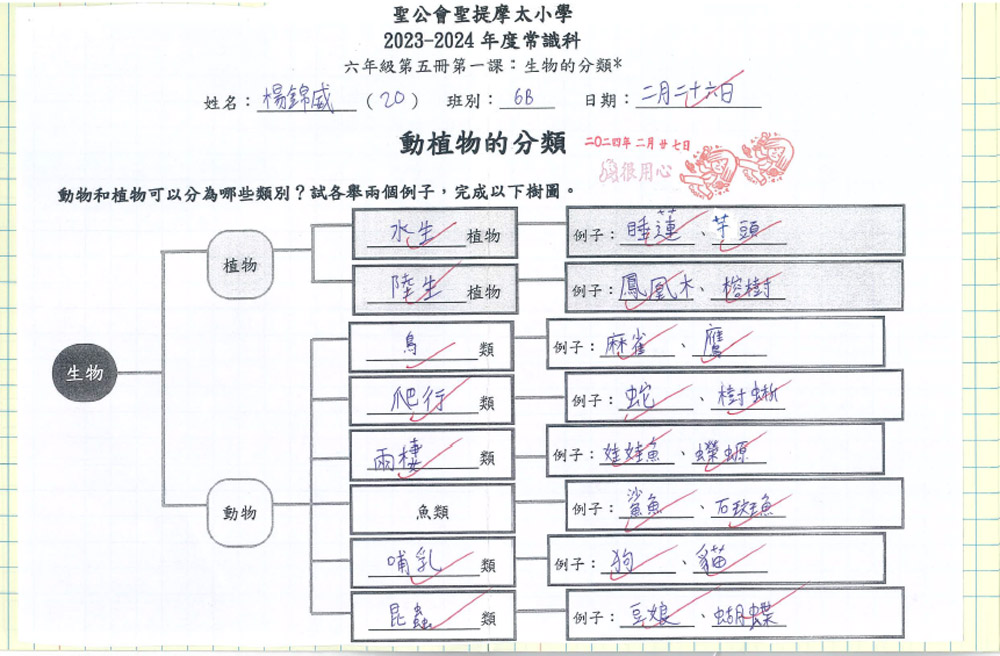 聖公會聖提摩太小學
2023-2024 年度常識科
六年級第五冊第一課：生物的分類*
姓名：楊錦威（20） 班別：6B 日期：二月二十六日
動植物的分類
二〇二四年 二月 廿七日
很用心
動物和植物可以分為哪些類別？試各舉兩個例子，完成以下樹圖。
水生植物 例子：睡蓮、芋頭
植物
陸生植物 例子：鳳凰木、榕樹
鳥類 例子：麻雀、鷹
生物
爬行類 例子：蛇、樹蜥
兩棲類 例子：娃娃魚、蠑螈
動物
魚類 例子：鯊魚、石斑魚
哺乳類 例子：狗、貓
昆蟲類 例子：豆娘、蝴蝶